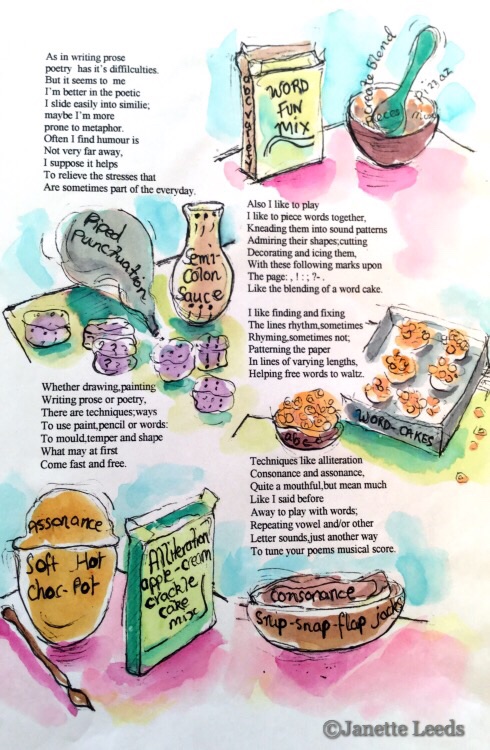 As in writing prose
poetry has it's diffilculties.
But it seems to me
I'm better in the poetic
I slide easily into similie;
maybe I'm more
prone to metaphor.
Often I find humour is
Not very far away,
I suppose it helps
To relieve the stresses that
Are sometimes part of the everyday.
abc variety
WORD
FUN
MIX
create blend
pieces
mix
Pizzaz
Also I like to play
I like to piece words together,
Kneading them into sound patterns
Admiring their shapes;cutting
Decorating and icing them,
With these following marks upon
The page: , ! : ; ?- .
Like the blending of a word cake.
Piped
Punctuation
Semi-
Colon
Sauce
I like finding and fixing
The lines rhythm,sometimes
Rhyming,sometimes not;
Patterning the paper
In lines of varying lengths,
Helping free words to waltz.
Whether drawing,painting
Writing prose or poetry,
There are techniques;ways
To use paint,pencil or words:
To mould,temper and shape
What may at first
Come fast and free.
WORD-CAKES
Techniques like alliteration
Consonance and assonance,
Quite a mouthful,but mean much
Like I said before
Away to play with words;
Repeating vowel and/or other
Letter sounds,just another way
To tune your poems musical score.
Assonance
Soft Hot
choc-Pot
Alliteration
apple-cream
crackle
cake
mix
Consonance
Snip-snap-flap jacks
©Janette Leeds